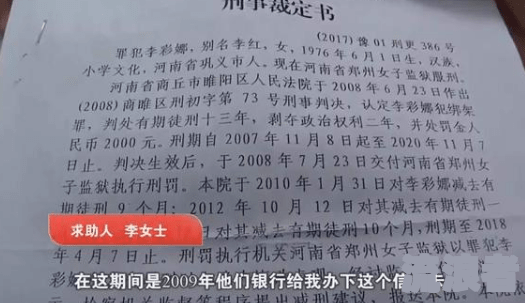 刑事裁定书
(2017)豫01刑更386号
罪犯李彩娜,别名李红,女,1976年6月1日生,汉族,
小学文化,河南省巩义市人。现在河南省郑州女子监狱服刑。
河南省商丘市睢阳区人民法院于2008年6月23日作出
(2008)商睢区刑初字第73号刑事判决,认定李彩娜犯绑架
罪,判处有期徒刑十三年,剥夺政治权利二年,并处罚金人
民币2000元。刑期自2007年11月8日起至2020年11月7
日止。判决生效后,于2008年7月23日交付河南省郑州女
子监狱执行刑罚。本院于2010年1月31日对李彩娜减去有
期徒刑9个月;2012年10月12日对其减去有期徒刑一
日对其减去有期徒刑10个月,刑期至2018
年4月7日止。刑罚执行机关河南省郑州女子监狱以罪犯李
求助人 李女士
在这期间是2009年他们银行给我办下这个信